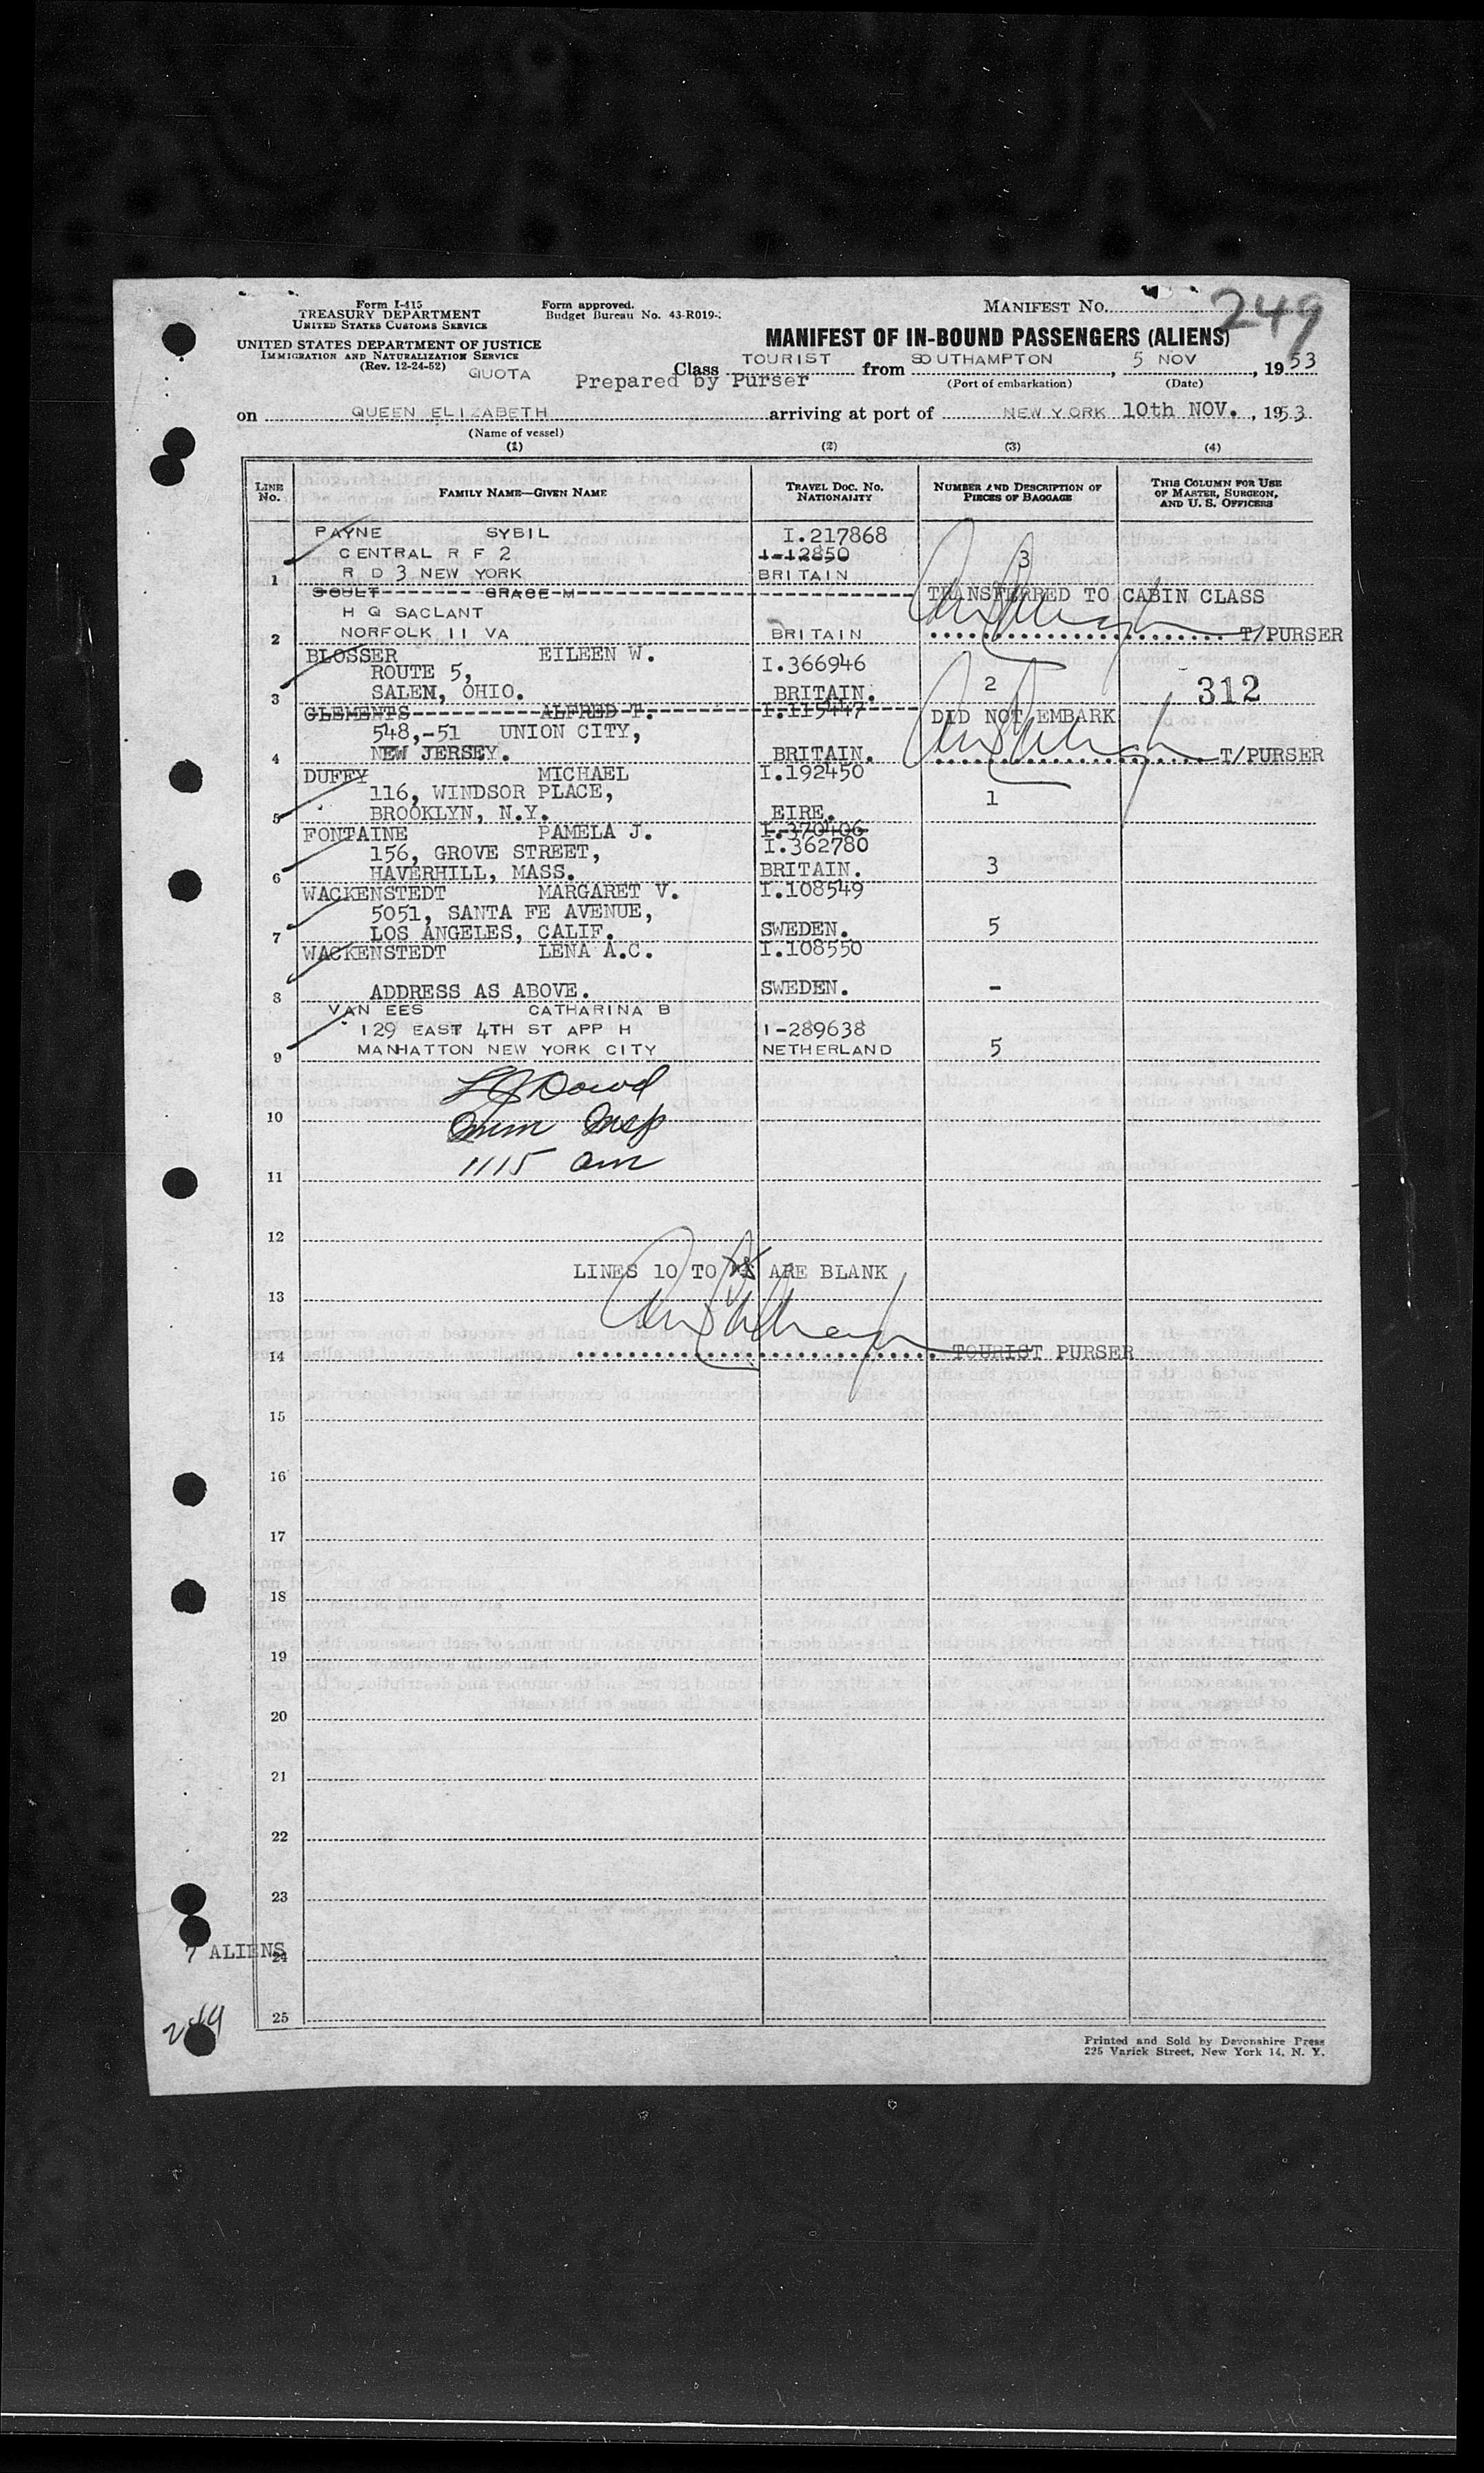 Form I-415
TREASURY DEPARTMENT
UNITED STATES CUSTOMS SERVICE
UNITED STATES DEPARTMENT OF JUSTICE
IMMIGRATION AND NATURALIZATION SERVICE
(Rev. 12-24-52)
QUOTA
Form approved.
Budget Bureau No. 43-R019-
MANIFEST NO. 249
MANIFEST OF IN-BOUND PASSENGERS (ALIENS)
Class TOURIST from SOUTHAMPTON, 5 NOV, 1953
Prepared by Purser
(Port of embarkation) (Date)
on QUEEN ELIZABETH arriving at port of NEW YORK 10th NOV., 1953
(Name of vessel)
(1) (2) (3) (4)
LINE No. FAMILY NAME—GIVEN NAME TRAVEL DOC. NO. NATIONALITY NUMBER AND DESCRIPTION OF PIECES OF BAGGAGE THIS COLUMN FOR USE OF MASTER, SURGEON, AND U. S. OFFICERS
PAYNE SYBIL I.217868
CENTRAL R F 2 I-12850 3
1 R D 3 NEW YORK BRITAIN
SOULT GRACE M TRANSFERRED TO CABIN CLASS
H Q SACLANT
2 NORFOLK 11 VA BRITAIN T/PURSER
BLOSSER EILEEN W. I.366946
ROUTE 5, 2 312
3 SALEM, OHIO. BRITAIN.
CLEMENTS ALFRED T. I.115447 DID NOT EMBARK
548,-51 UNION CITY,
4 NEW JERSEY. BRITAIN. T/PURSER
DUFFY MICHAEL I.192450
116, WINDSOR PLACE, 1
5 BROOKLYN, N.Y. EIRE.
FONTAINE PAMELA J. I.370406
156, GROVE STREET, I.362780
6 HAVERHILL, MASS. BRITAIN. 3
WACKENSTEDT MARGARET V. I.108549
5051, SANTA FE AVENUE,
7 LOS ANGELES, CALIF. SWEDEN. 5
WACKENSTEDT LENA A.C. I.108550
8 ADDRESS AS ABOVE. SWEDEN. -
VAN EES CATHARINA B
129 EAST 4TH ST APP H I-289638
9 MANHATTON NEW YORK CITY NETHERLAND 5
Dowd
10 Imm Insp
11 1115 am
12
LINES 10 TO ARE BLANK
13
14 TOURIST PURSER
15
16
17
18
19
20
21
22
23
7 ALIENS
24
25
249
Printed and Sold by Devonshire Press
225 Varick Street, New York 14, N. Y.